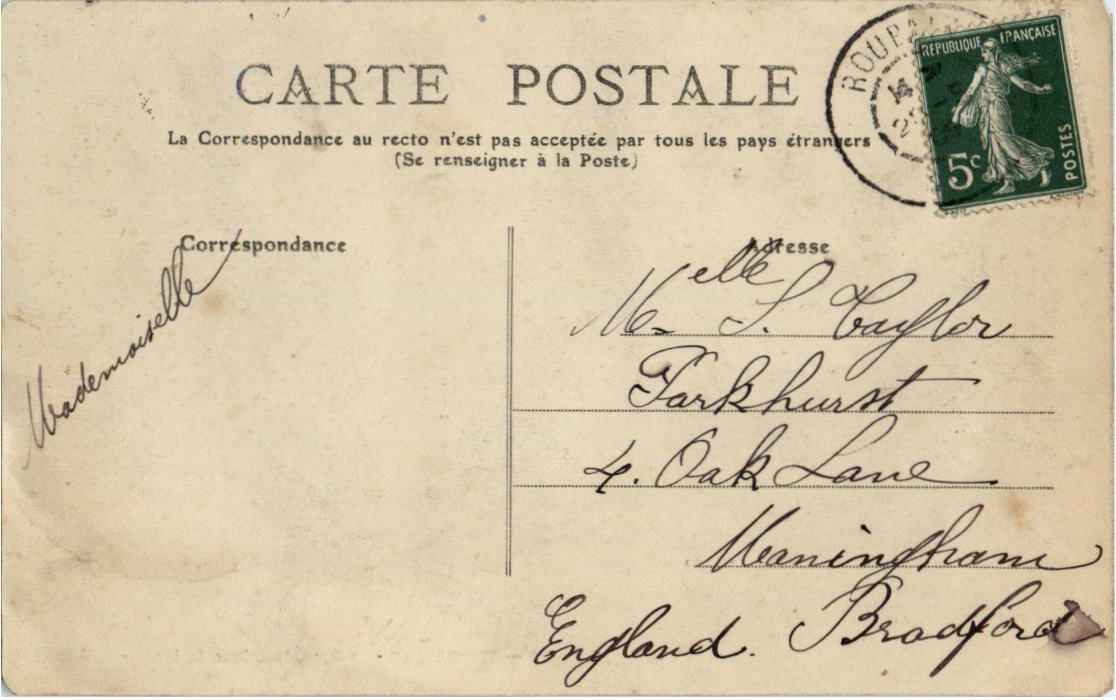 CARTE POSTALE
La Correspondance au recto n'est pas acceptée par tous les pays étrangers
(Se renseigner à la Poste)
REPUBLIQUE FRANÇAISE
5c
POSTES
Correspondance
Mademoiselle
Adresse
Melle S. Taylor
Parkhurst
4. Oak Lane
Maningham
Bradford
England.